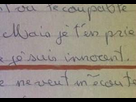 ou recoupable
Mais je t'en prie
je suis innocent.
ne veut m'écoute